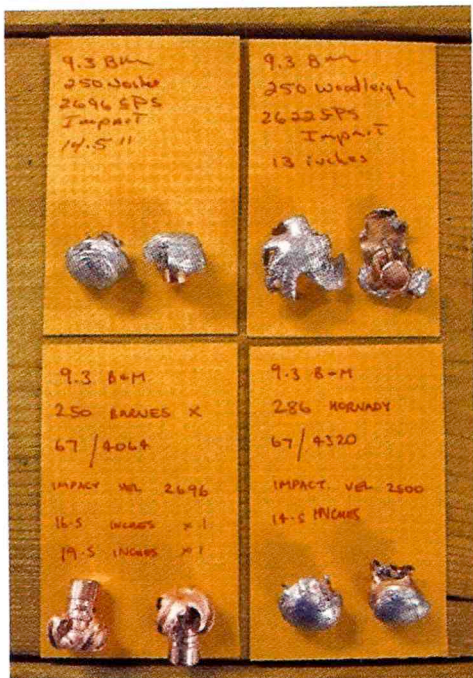 9.3 B+M
250 Nosler
2696 SPS
Impact
14.5"
9.3 B+M
250 Woodleigh
2622 SPS
Impact
13 inches
9.3 B+M
250 BARNES X
67/4064
IMPACT VEL 2696
16.5 INCHES x 1
19.5 INCHES x 1
9.3 B+M
286 HORNADY
67/4320
IMPACT. VEL 2500
14.5 INCHES